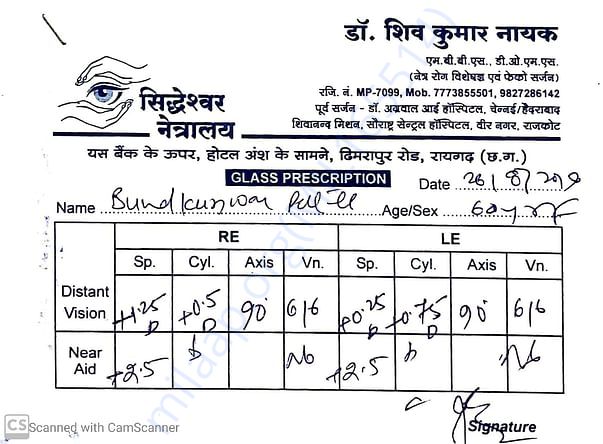 डॉ. शिव कुमार नायक
एम.बी.बी.एस., डी.ओ.एम.एस.
(नेत्र रोग विशेषज्ञ एवं फेको सर्जन)
रजि. नं. MP-7099, Mob. 7773855501, 9827286142
पूर्व सर्जन - डॉ. अग्रवाल आई हॉस्पिटल, चेन्नई/हैदराबाद
शिवानन्द मिशन, सौराष्ट्र सेन्ट्रल हॉस्पिटल, वीर नगर, राजकोट
सिद्धेश्वर
नेत्रालय
यस बैंक के ऊपर, होटल अंश के सामने, ढिमरापुर रोड, रायगढ़ (छ.ग.)
GLASS PRESCRIPTION
Date
Name Age/Sex 60y
RE LE
Sp. Cyl. Axis Vn. Sp. Cyl. Axis Vn.
Distant Vision +1.25 D +0.5 D 90 6/6 +0.25 D +0.75 D 90 6/6
Near Aid +2.5 N6 +2.5 N6
Signature
CS Scanned with CamScanner